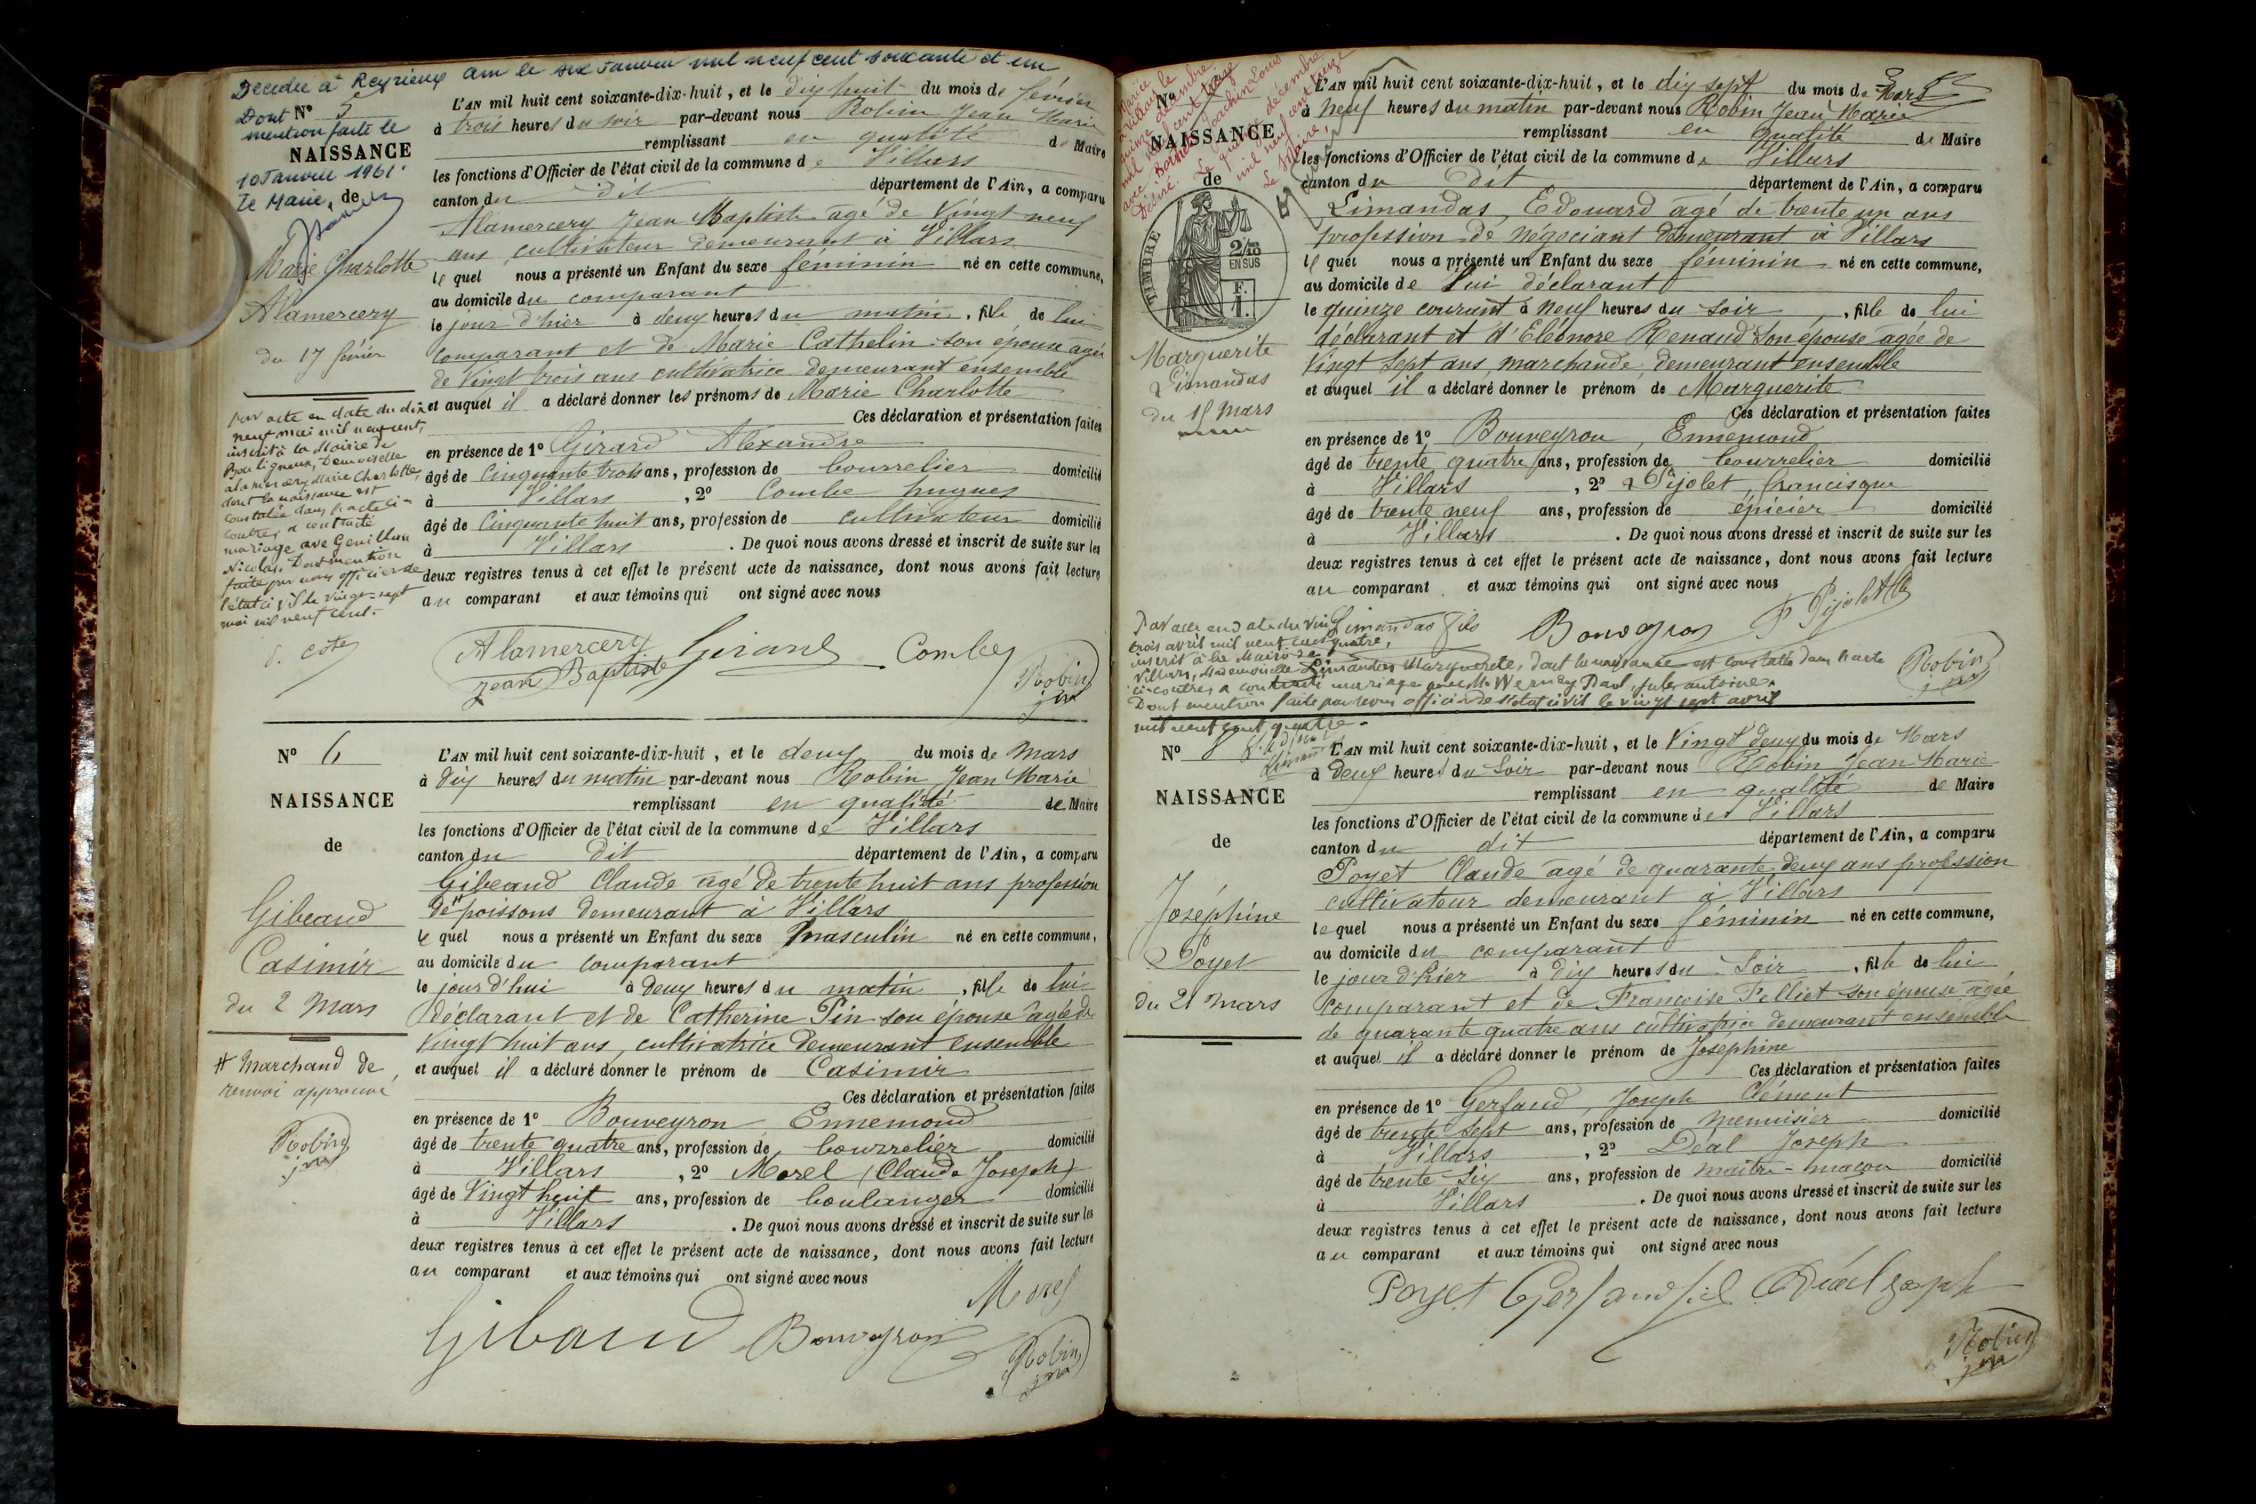 Décédée à Reyrieux Ain le six Janvier mil neuf cent soixante et un
Dont
mention faite le
10 Janvier 1961
Le Maire,
N° 5
NAISSANCE
de
Marie Charlotte
Alamercery
du 17 février
par acte en date du dix
neuf mai mil neuf cent,
inscrit à la Mairie de
Demoiselle
Alamercery Marie Charlotte,
dont la naissance est
constatée dans l'acte ci-
contre, a contracté
mariage avec Genillon
Nicolas. Dont mention
faite par nous officier de
l'état civil le vingt-sept
mai mil neuf cent.
L'AN mil huit cent soixante-dix-huit, et le dix huit du mois de février
à trois heures du soir par-devant nous Robin Jean Marie
remplissant en qualité de Maire
les fonctions d'Officier de l'état civil de la commune de Villars
canton du dit département de l'Ain, a comparu
Alamercery Jean Baptiste agé de Vingt neuf
ans cultivateur demeurant à Villars
le quel nous a présenté un Enfant du sexe féminin né en cette commune,
au domicile du comparant
le jour d'hier à deux heures du matin, fille de lui
comparant et de Marie Cathelin son épouse agée
de Vingt trois ans cultivatrice demeurant ensemble
et auquel il a déclaré donner les prénoms de Marie Charlotte
Ces déclaration et présentation faites
en présence de 1° Girard Alexandre
âgé de Cinquante trois ans, profession de bourrelier domicilié
à Villars, 2° Combe hugues
âgé de Cinquante huit ans, profession de cultivateur domicilié
à Villars. De quoi nous avons dressé et inscrit de suite sur les
deux registres tenus à cet effet le présent acte de naissance, dont nous avons fait lecture
au comparant et aux témoins qui ont signé avec nous
Alamercery Girard Combe
Jean Baptiste Robin
N° 6
NAISSANCE
de
Gibeaud
Casimir
du 2 Mars
# Marchand de
renvoi approuvé
Robin
L'AN mil huit cent soixante-dix-huit, et le deux du mois de Mars
à dix heures du matin par-devant nous Robin Jean Marie
remplissant en qualité de Maire
les fonctions d'Officier de l'état civil de la commune de Villars
canton du dit département de l'Ain, a comparu
Gibeaud Claude agé de trente huit ans profession
de # poissons demeurant à Villars
le quel nous a présenté un Enfant du sexe masculin né en cette commune,
au domicile du comparant
le jour d'hui à deux heures du matin, fils de lui
déclarant et de Catherine Pin son épouse agée de
Vingt huit ans, cultivatrice demeurant ensemble
et auquel il a déclaré donner le prénom de Casimir
Ces déclaration et présentation faites
en présence de 1° Bouveyron Ennemond
âgé de trente quatre ans, profession de bourrelier domicilié
à Villars, 2° Morel (Claude Joseph)
âgé de Vingt huit ans, profession de boulanger domicilié
à Villars. De quoi nous avons dressé et inscrit de suite sur les
deux registres tenus à cet effet le présent acte de naissance, dont nous avons fait lecture
au comparant et aux témoins qui ont signé avec nous
Morel
Gibaud Bouveyron
Robin
N°
NAISSANCE
de
TIMBRE
2/10
EN SUS
F.
1.
Marguerite
Limandas
du 15 mars
L'AN mil huit cent soixante-dix-huit, et le dix sept du mois de Mars
à neuf heures du matin par-devant nous Robin Jean Marie
remplissant en qualité de Maire
les fonctions d'Officier de l'état civil de la commune de Villars
canton du dit département de l'Ain, a comparu
Limandas, Edouard agé de trente un ans
profession de négociant demeurant à Villars
le quel nous a présenté un Enfant du sexe féminin né en cette commune,
au domicile de lui déclarant
le quinze courant à neuf heures du soir, fille de lui
déclarant et d'Eléonore Renaud son épouse agée de
Vingt sept ans, marchande, demeurant ensemble
et auquel il a déclaré donner le prénom de Marguerite
Ces déclaration et présentation faites
en présence de 1° Bouveyron, Ennemond
âgé de trente quatre ans, profession de bourrelier domicilié
à Villars, 2° Pijolet, francisque
âgé de trente neuf ans, profession de épicier domicilié
à Villars. De quoi nous avons dressé et inscrit de suite sur les
deux registres tenus à cet effet le présent acte de naissance, dont nous avons fait lecture
au comparant et aux témoins qui ont signé avec nous
Limandas fils Bouveyron Robin
Par acte en date du vingt
trois avril mil neuf cent quatre,
inscrit à la Mairie de
Villars, Mademoiselle Limandas Marguerite, dont la naissance est constatée dans l'acte
ci-contre, a contracté mariage avec Mr
Dont mention faite par nous officier de l'état civil le vingt sept avril
mil neuf cent quatre.
N° 8
NAISSANCE
de
Joséphine
Poyet
du 21 mars
L'AN mil huit cent soixante-dix-huit, et le Vingt deux du mois de Mars
à deux heures du soir par-devant nous Robin Jean Marie
remplissant en qualité de Maire
les fonctions d'Officier de l'état civil de la commune de Villars
canton du dit département de l'Ain, a comparu
Poyet Claude agé de quarante deux ans profession
cultivateur demeurant à Villars
le quel nous a présenté un Enfant du sexe féminin né en cette commune,
au domicile du comparant
le jour d'hier à dix heures du soir, fille de lui
comparant et de Françoise Felliet son épouse agée
de quarante quatre ans cultivatrice demeurant ensemble
et auquel il a déclaré donner le prénom de Josephine
Ces déclaration et présentation faites
en présence de 1° Gerfaud, Joseph Clément
âgé de trente sept ans, profession de menuisier domicilié
à Villars, 2° Déal Joseph
âgé de trente six ans, profession de maître-maçon domicilié
à Villars. De quoi nous avons dressé et inscrit de suite sur les
deux registres tenus à cet effet le présent acte de naissance, dont nous avons fait lecture
au comparant et aux témoins qui ont signé avec nous
Poyet Gerfaud Déal Joseph
Robin